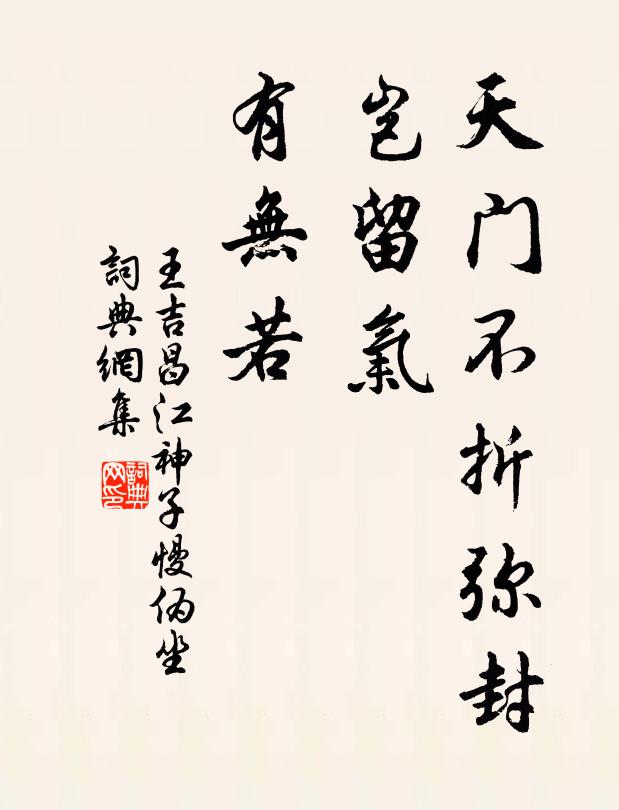 天門不折弥封
豈留氣
有無若
王吉昌江神子慢伪坐
詞典網集
詞典
网印